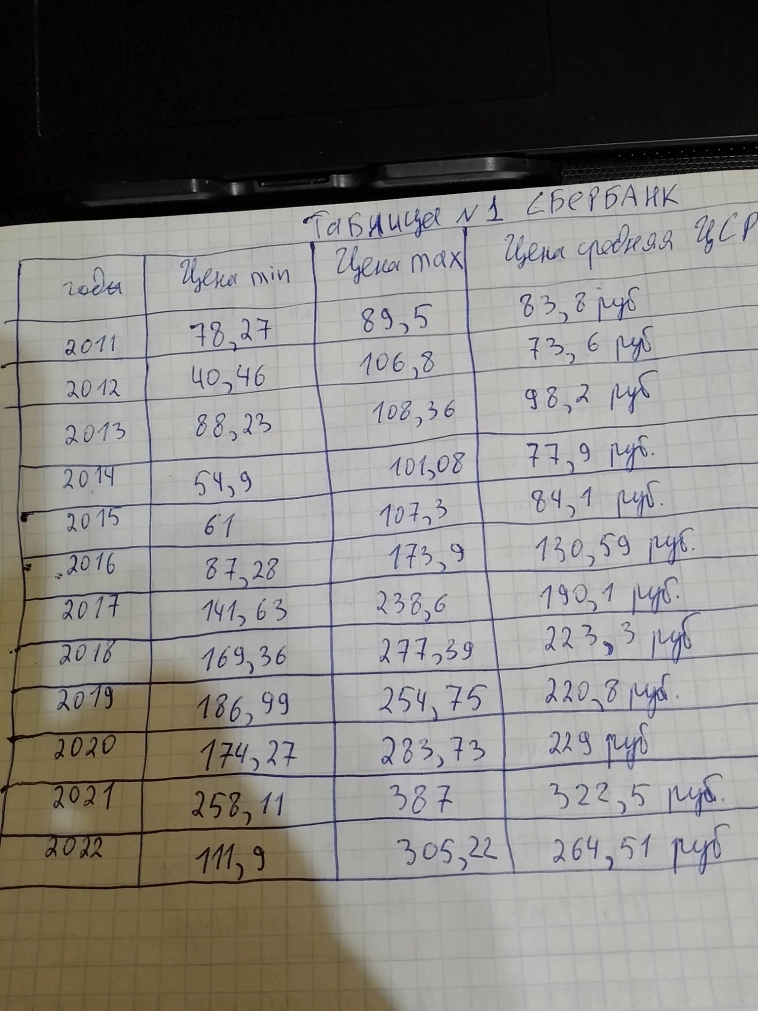 Таблица №1 СБЕРБАНК
годы Цена min Цена max Цена средняя ЦСР
2011 78,27 89,5 83,8 руб
2012 40,46 106,8 73,6 руб
2013 88,23 108,36 98,2 руб
2014 54,9 101,08 77,9 руб.
2015 61 107,3 84,1 руб.
2016 87,28 173,9 130,59 руб.
2017 141,63 238,6 190,1 руб.
2018 169,36 277,39 223,3 руб
2019 186,99 254,75 220,8 руб.
2020 174,27 283,73 229 руб
2021 258,11 387 322,5 руб.
2022 111,9 305,22 264,51 руб